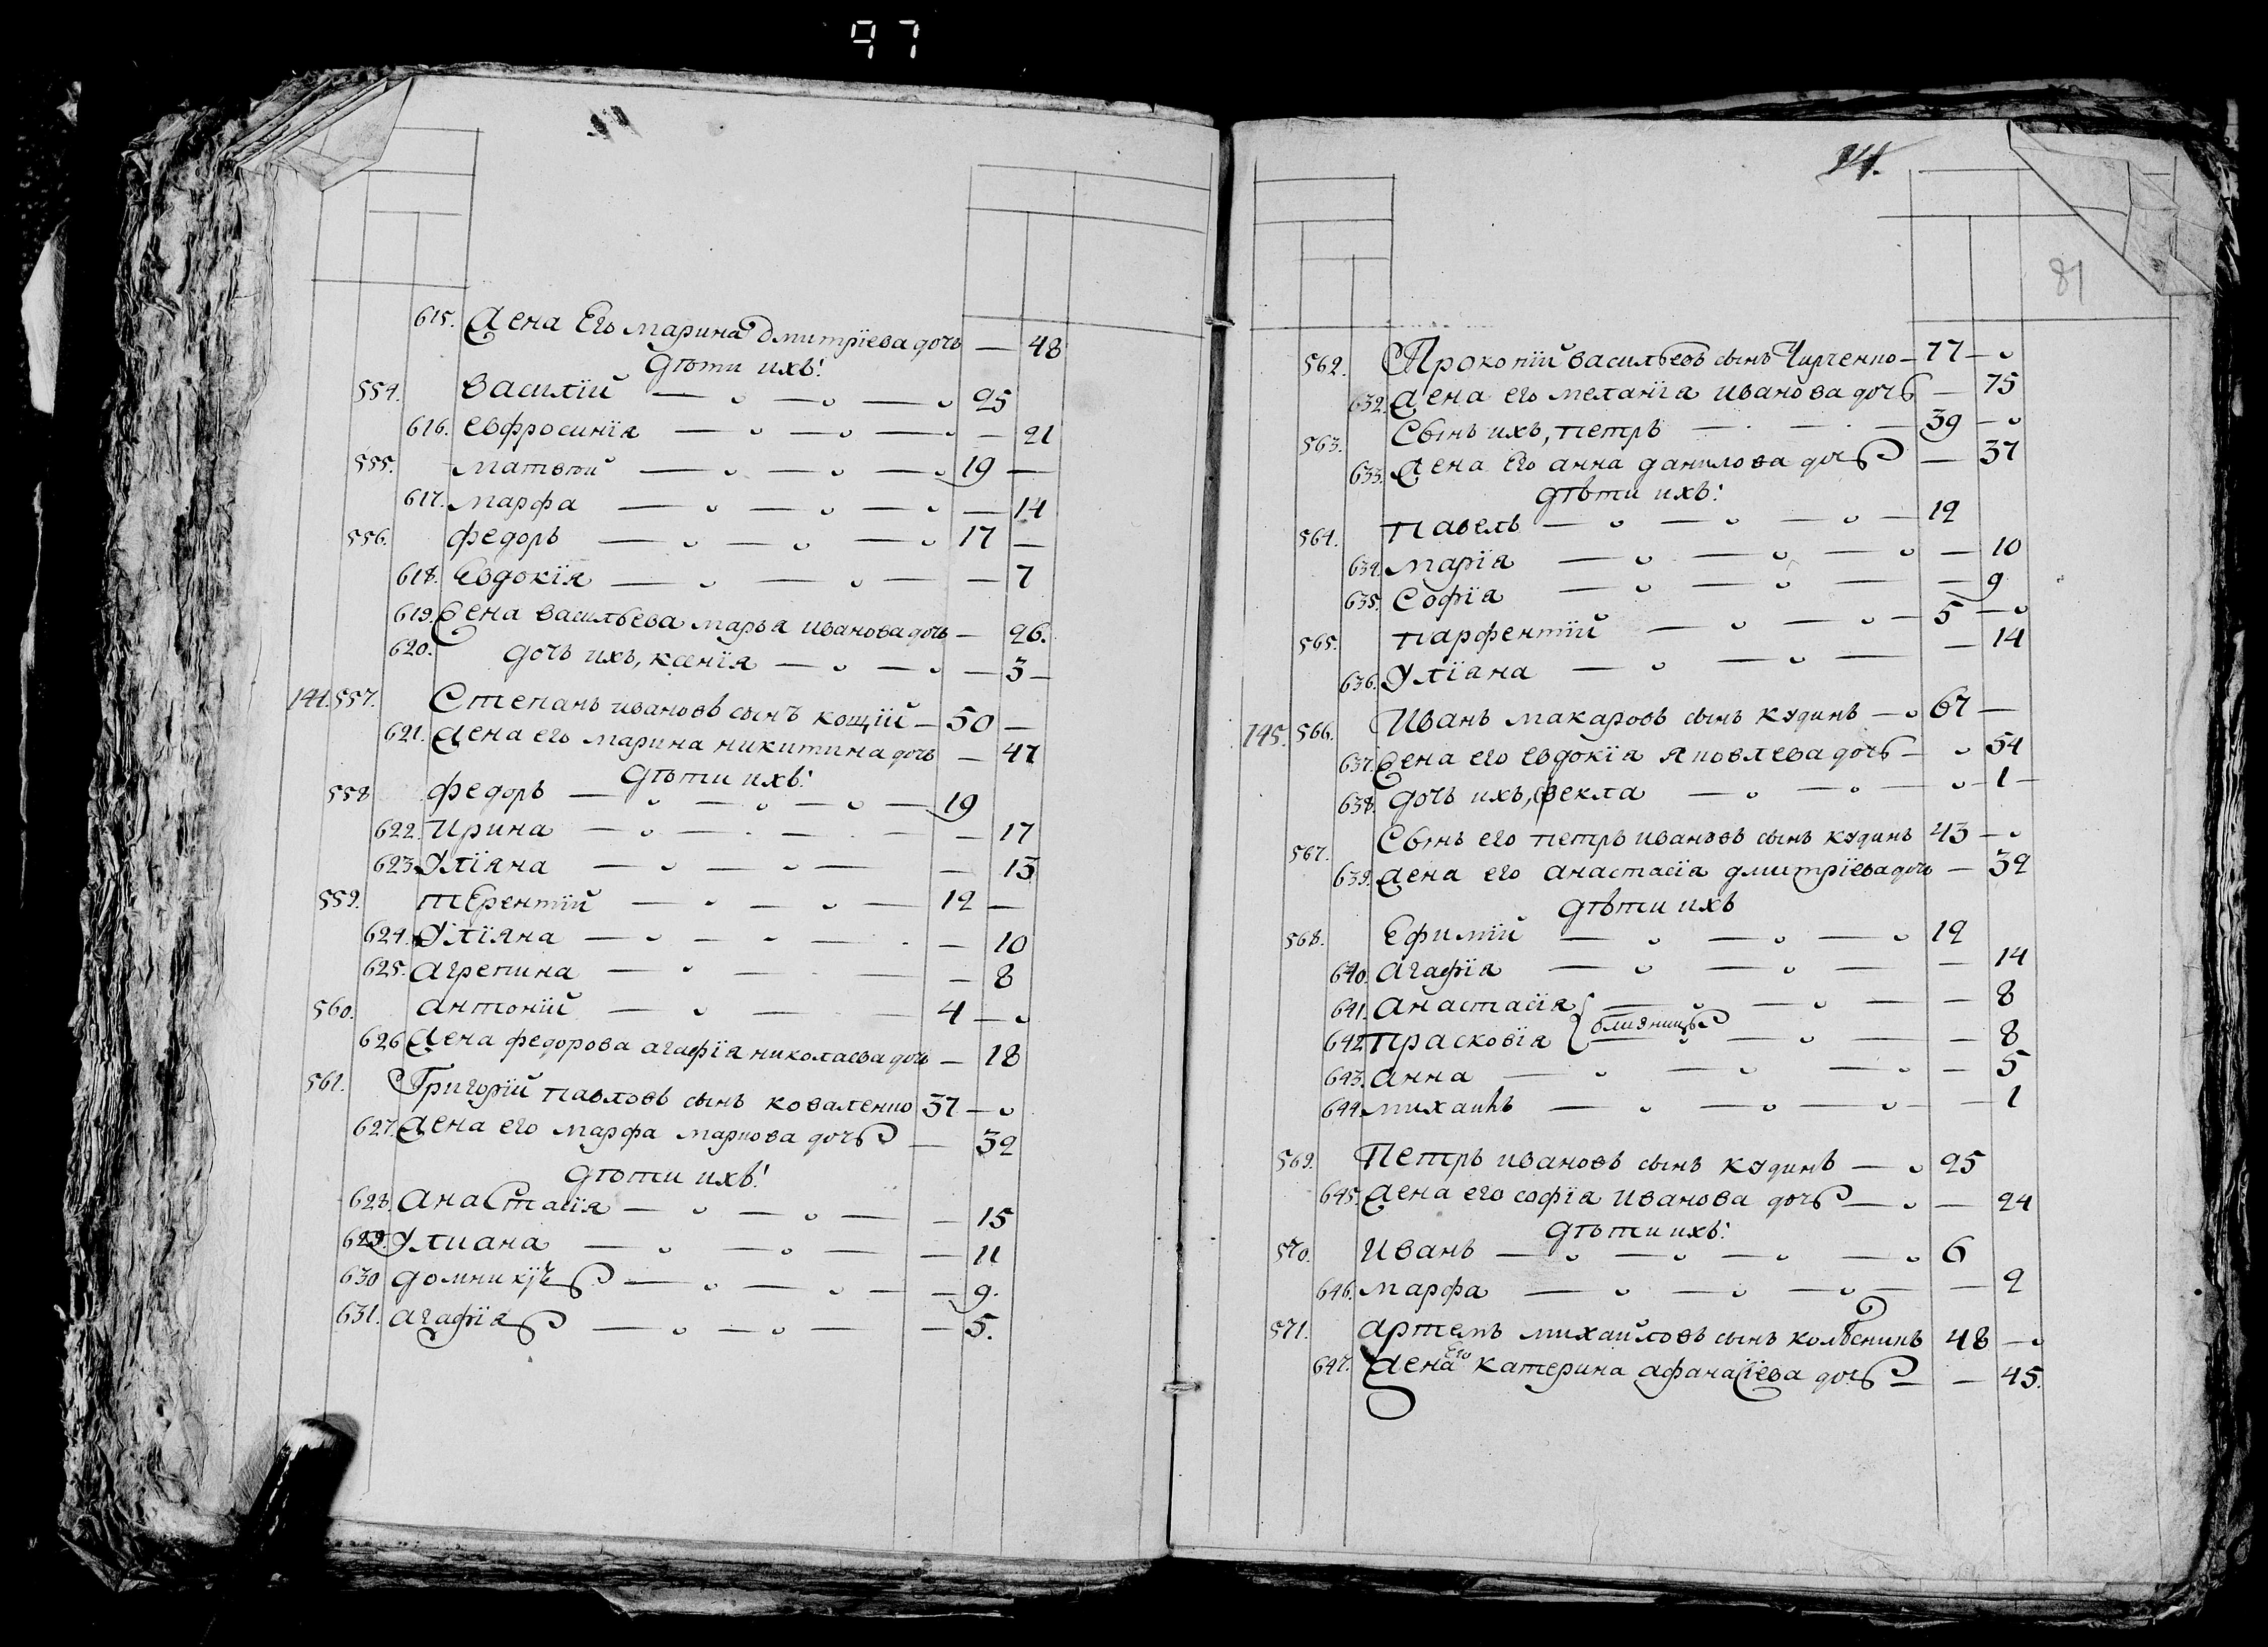 97
615. Жена Его марина Дмитрїева дочь — 48
дѣти ихъ:
554. василїй — 25
616. евфросинїя — 21
555. матвѣй — 19 —
617. марфа — 14
556. федоръ — 17 —
618. Евдокїя — 7
619. Жена васильева марья иванова дочь — 26.
620. дочь ихъ, ксенїя — 3 —
144. 557. Степанъ ивановъ сынъ кощїй — 50 —
621. жена его марина никитина дочь — 47
дѣти ихъ:
558 федоръ — 19
622. Ирина — 17
623. Улїяна — 13
559. терентїй — 12 —
624. Улїяна — 10
625. агрепина — 8
560. антонїй — 4 —
626 жена федорова агафїя николаева дочь — 18
561. Григорїй павловъ сынъ коваленко 37 —
627. жена его марфа маркова дочь — 32
дѣти ихъ:
628. анастасїя — 15
629. Улиана — 11
630 домникїя — 9.
631. агафїя — 5.
14.
81
562. Прокопїй васильевъ сынъ Чирченко — 77 —
632. жена его меланїя иванова дочь — 75
563. Сынъ ихъ, петръ — 39 —
633. жена Его анна данилова дочь — 37
дѣти ихъ:
564. павелъ — 12
634. марїя — 10
635. Софїя — 9
565. парфентїй — 5 —
636. Улїяна — 14
145. 566. Иванъ макаровъ сынъ кудинъ — 67 —
637. жена его евдокїя яковлева дочь — 54
638. дочь ихъ, фекла — 1 —
567. Сынъ его петръ ивановъ сынъ кудинъ 43 —
639. жена его анастасїя дмитрїева дочь — 39
дѣти ихъ
568. Ефимїй — 12
640. агафїя — 14
641. анастасїя — 8
близницѣ
642. прасковїя — 8
643. анна — 5
644. михаилъ — 1
569. Петръ ивановъ сынъ кудинъ — 25
645. жена его софїя Иванова дочь — 24
дѣти ихъ:
570. Иванъ — 6
646. марфа — 2
571. артемъ михайловъ сынъ колѣсникъ 48 —
647. жена его катерина афанасїева дочь — 45.